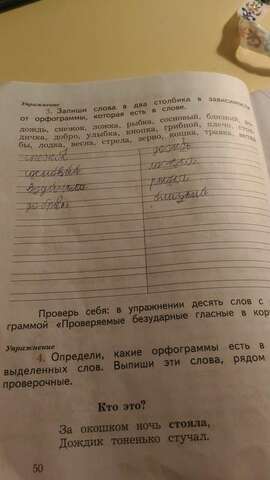 Упражнение
3. Запиши слова в два столбика в зависимости
от орфограммы, которая есть в слове.
дождь, снежок, ложка, рыбка, сосновый, близкий,
дичка, добро, улыбка, кнопка, грибной, плечо, столб
бы, лодка, весна, стрела, зерно, кошка, травка,
снежок дождь
сосновый ложка
рыбка
близкий
Проверь себя: в упражнении десять слов с
граммой «Проверяемые безударные гласные в кор
Упражнение
4. Определи, какие орфограммы есть в
выделенных слов. Выпиши эти слова, рядом
проверочные.
Кто это?
За окошком ночь стояла,
Дождик тоненько стучал.
50